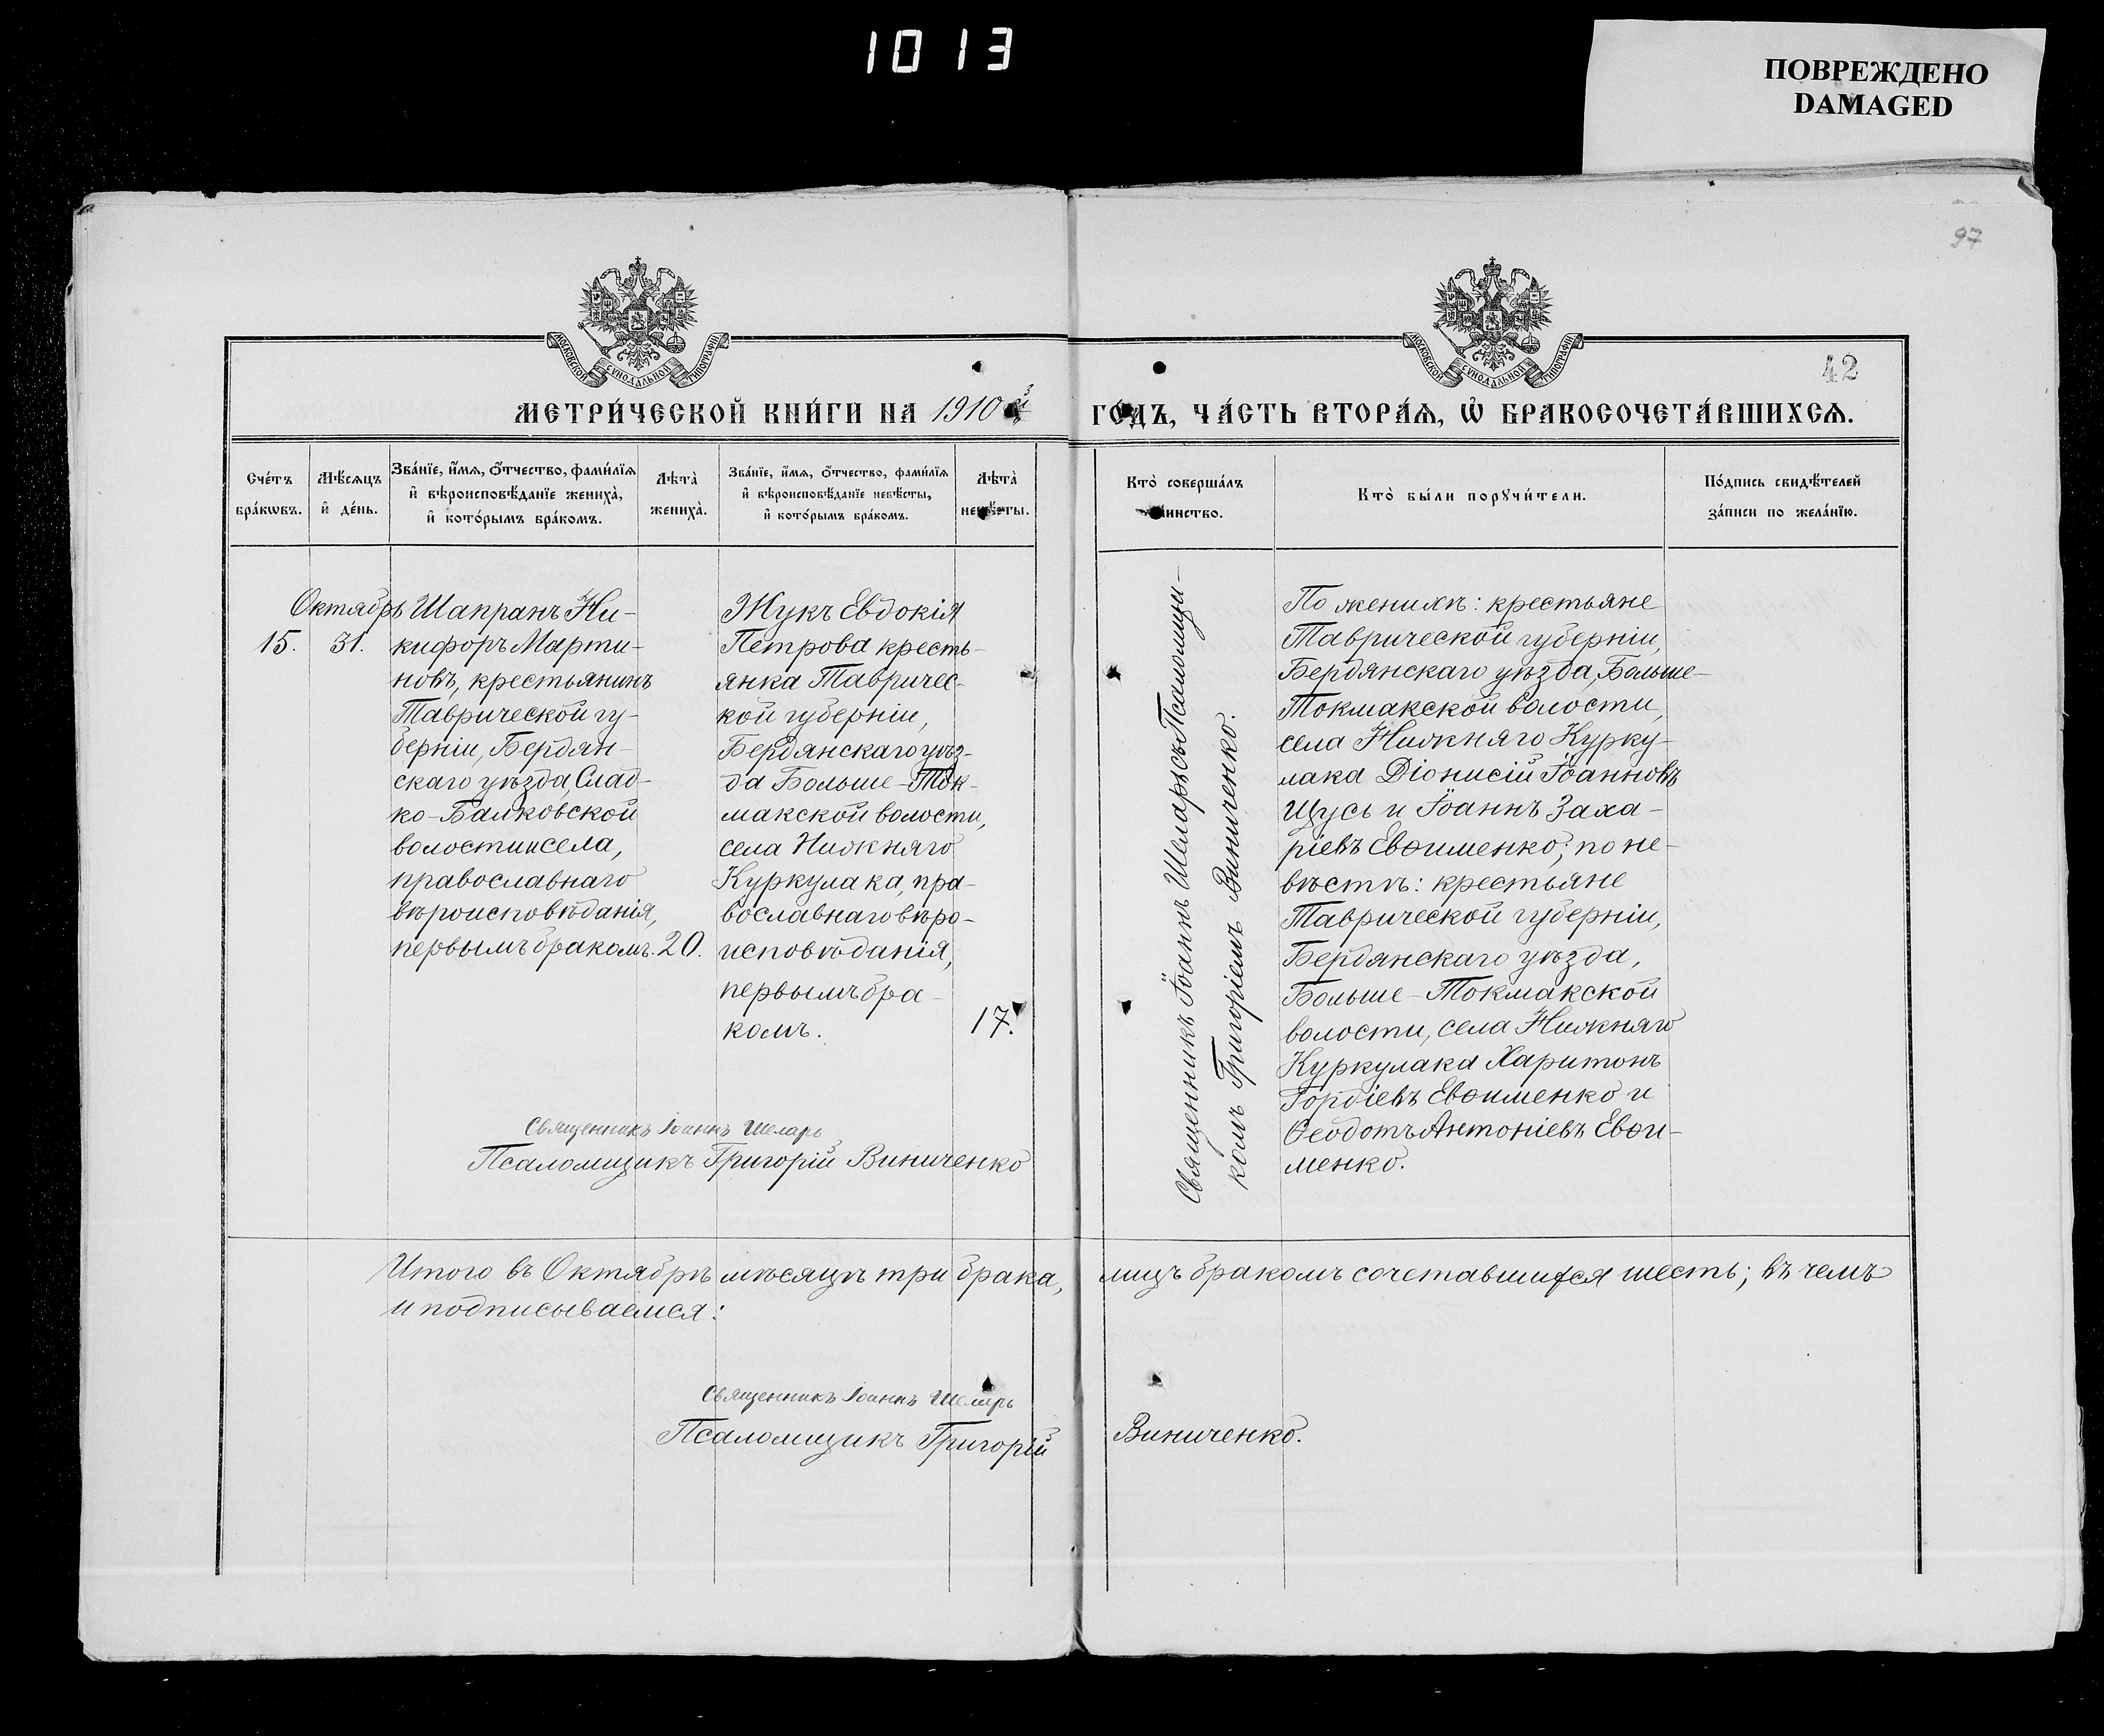 1013
ПОВРЕЖДЕНО
DAMAGED
97
МОСКОВСКОЙ СѴНОДАЛЬНОЙ ТИПОГРАФІИ
МОСКОВСКОЙ СѴНОДАЛЬНОЙ ТИПОГРАФІИ
42
МЕТРИ́ЧЕСКОЙ КНИ́ГИ НА 1910й
ГО́ДЪ, ЧА́СТЬ ВТОРА́Ѧ, Ѡ҆ БРАКОСОЧЕТА́ВШИХСѦ.
Сче́тъ
бра́кѡвъ.
Мѣ́сѧцъ
и҆ де́нь.
Зва́нїе, и҆́мѧ, ѻ҆́тчество, фами́лїѧ
и҆ вѣроисповѣ́данїе жениха̀,
и҆ кото́рымъ бра́комъ.
Лѣта̀
жениха̀.
Зва́нїе, и҆́мѧ, ѻ҆́тчество, фами́лїѧ
и҆ вѣроисповѣ́данїе невѣ́сты,
и҆ кото́рымъ бра́комъ.
Лѣта̀
невѣ́сты.
Кто̀ соверша́лъ
таинство.
Кто̀ бы́ли порꙋчи́тели.
По́дпись свидѣ́телей
за́писи по жела́нїю.
15.
Октябрь
31.
Шапранъ Ни-
кифоръ Марти-
новъ, крестьянинъ
Таврической гу-
берніи, Бердян-
скаго уѣзда, Слад-
ко-Балковской
волости и села,
православнаго
вѣроисповѣданія,
первымъ бракомъ.
20.
Жукъ Евдокія
Петрова кресть-
янка Тавричес-
кой губерніи,
Бердянскаго уѣз-
да Больше-Ток-
макской волости,
села Нижняго
Куркулака, пра-
вославнаго вѣро-
исповѣданія,
первымъ бра-
комъ.
17.
Священникъ Іоаннъ Шеларь съ Псаломщи-
комъ Григоріемъ Виниченко.
По женихѣ: крестьяне
Таврической губерніи,
Бердянскаго уѣзда, Больше-
Токмакской волости,
села Нижняго Курку-
лака Діонисій Іоанновъ
Щусь и Іоаннъ Заха-
ріевъ Евѳименко; по не-
вѣстѣ: крестьяне
Таврической губерніи,
Бердянскаго уѣзда,
Больше-Токмакской
волости, села Нижняго
Куркулака Харитонъ
Гордіевъ Евѳименко и
Ѳеодотъ Антоніевъ Евѳи-
менко.
Священникъ Іоаннъ Шеларь
Псаломщикъ Григорій Виниченко
Итого въ Октябрѣ мѣсяцѣ три брака, лицъ бракомъ сочетавшихся шесть; въ чемъ
и подписываемся:
Священникъ Іоаннъ Шеларь
Псаломщикъ Григорій Виниченко.